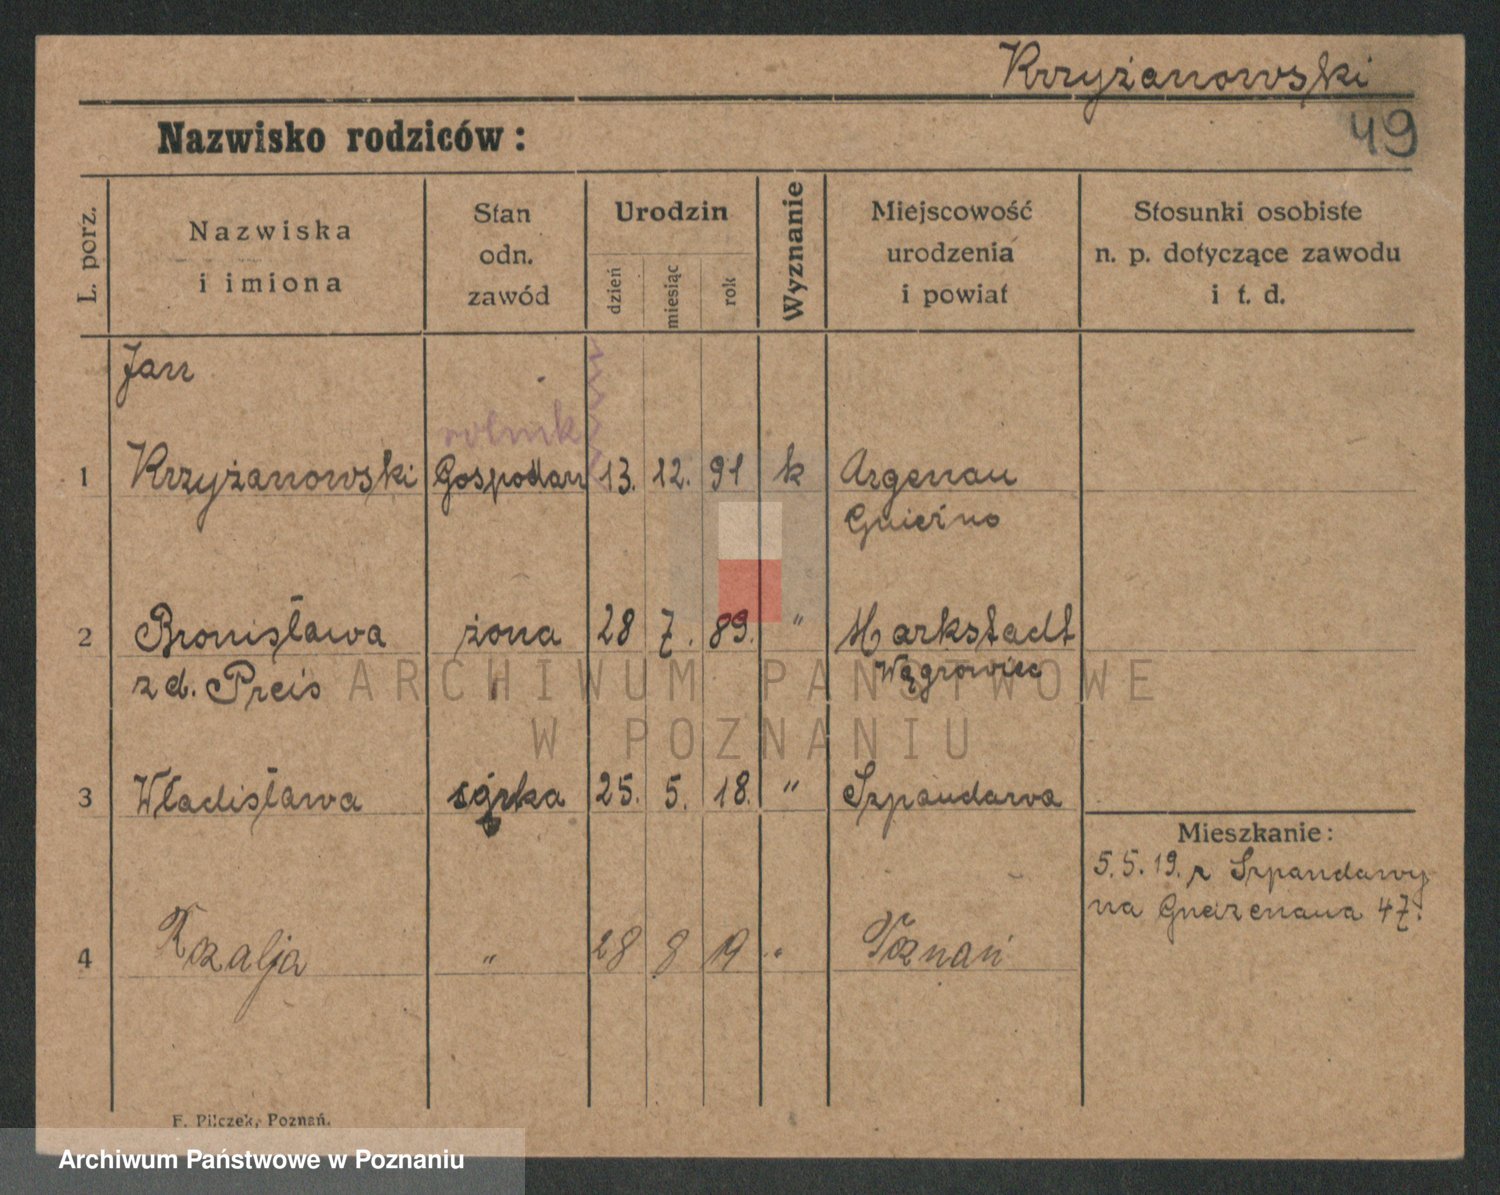 Krzyżanowski
Nazwisko rodziców:
49
L. porz.
Nazwiska
i imiona
Stan
odn.
zawód
Urodzin
dzień
miesiąc
rok
Wyznanie
Miejscowość
urodzenia
i powiat
Stosunki osobiste
n. p. dotyczące zawodu
i t. d.
Jan
rolnik
1 Krzyżanowski Gospodarz 13. 12. 91 k Argenau
Gnieźno
2 Bronisława żona 28 7. 89. " Markstadt
z d. Preis Wągrowiec
ARCHIWUM PAŃSTWOWE
W POZNANIU
3 Władisława córka 25. 5. 18. " Szpandawa
Mieszkanie:
5.5.19. z Szpandawy
na Gneizenaua 47.
4 Rozalja " 28 8 19 " Poznań
F. Pilczek, Poznań.
Archiwum Państwowe w Poznaniu